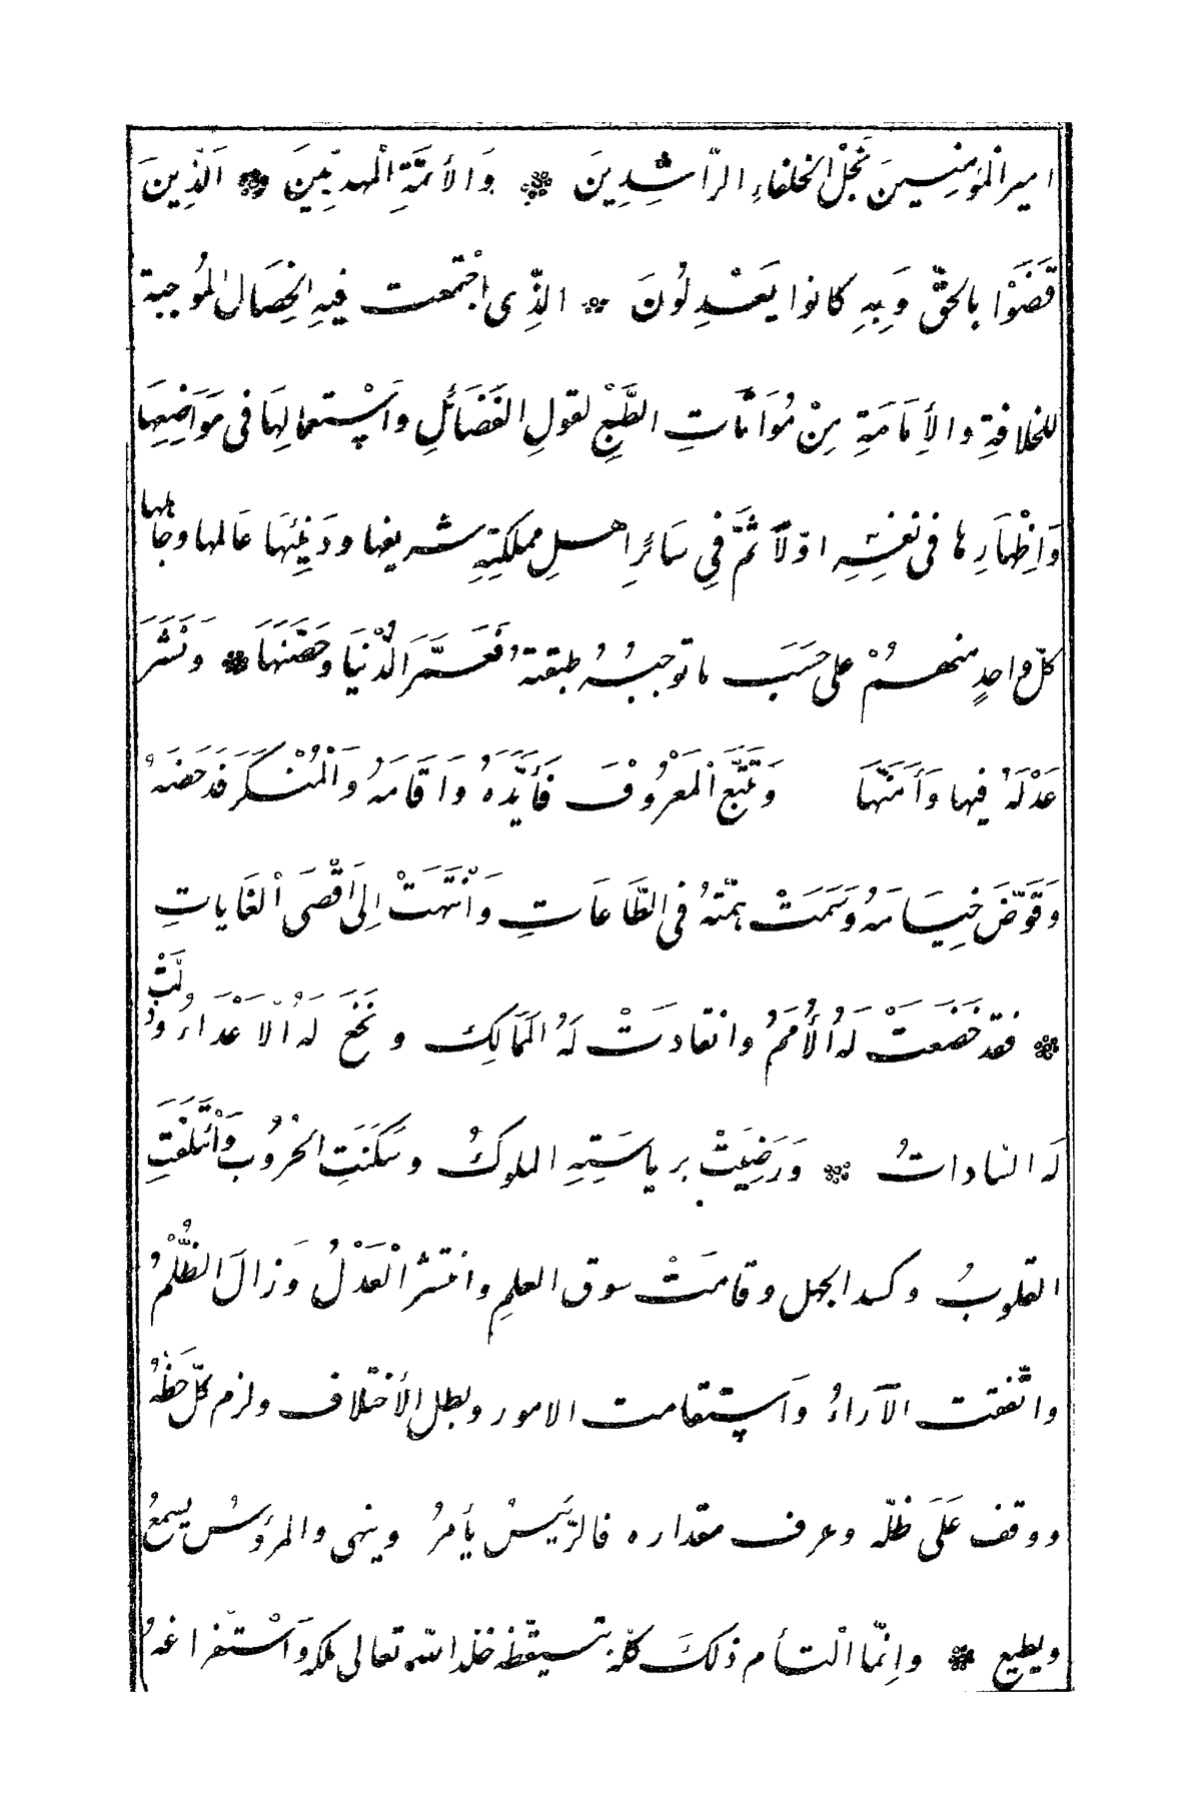 امير المؤمِنِينَ نَجْلِ الخلفاءِ الرّاشِدِينَ ۞ وَالأئمَّةِ الْمهديّينَ ۞ اَلَّذِينَ
قَضَوْا بالحَقّ وَبِهِ كانوا يَعْدِلُونَ ۞ الذِّى اجْتمعت فيهِ الخِصَال المُوجبة
للخلافةِ والأِمَامَةِ مِنْ مُوَاتَاتِ الطَّبْعِ لقولِ الفَضَائلِ وَاسْتعمالِهَا فى مَوَاضِعِهَا
وَاِظْهَارِها فى نفسِهِ اوّلاً ثمَّ فِي سَائرِ اهلِ مملكتِهِ شريفها ودَنِيئِهَا عَالمها وجَاهلها
كلّ واحدٍ منهمْ على حَسَبَ ما توجبُهُ طبقتهُ فَعَمَّرَ الدُّنْيَا وحَصَّنَهَا ۞ وَنَشَرَ
عَدْلَهُ فيها وَأَمَنَّهَا وَتَتَبَّعَ الْمَعْرُوْفَ فَأَيَّدَهُ وَاَقَامَهُ وَالْمُنْكَرَ فَدَحَضَهُ
وَقَوَّضَ خِيَامَهُ وَسَمَتْ هِمّتهُ فى الطَّاعَاتِ وَانْتَهَتْ اِلَى اَقْصَى الْغَاياتِ
۞ فقد خَضَعَتْ لَهُ الأُمَمُ وانقادَتْ لَهُ المَمَالِكُ ونَخَعَ لهُ الْاَعْدَاءُ وذَلَّتْ
لَه السّاداتُ ۞ وَرَضِيَتْ برياسَتِهِ الملوكُ وسَكَنَتِ الحْرُوُب وَاْئتَلَفَتِ
القلوبُ وكسد الجهل وقامَتْ سوق العلمِ وانتشر الْعَدْلُ وَزالَ الظُّلْمُ
واتّفقت الآراءُ وَاسْتقامت الامور وبطل الأختلاف ولزم كلّ حَظّهُ
ووقف عَلَى ظلّه وعرف مقداره فالرَّئيسُ يأمرُ وينهى والمرؤسُ يسمعُ
ويطيع ۞ واِنمّا الْتأم ذلكَ كلّه بتيقّظهِ خلد الله تعالى ملكه وَاسْتفراغهُ